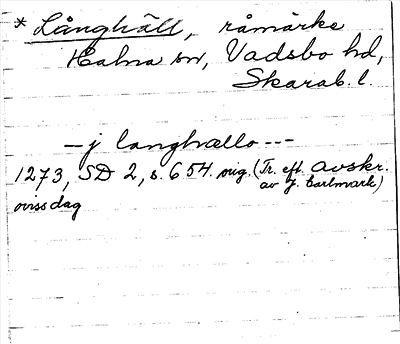 * Långhäll, råmärke
Halna sn, Vadsbo hd,
Skarab. l.
- j langhællo ---
1273, SD 2, s. 654. orig. (Tr. eft. avskr.
av J. Carlmark)
oviss dag